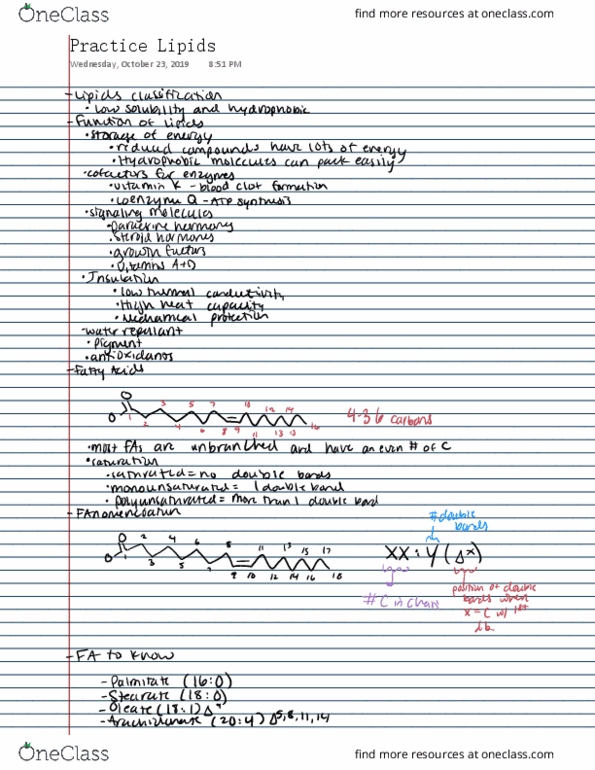 OneClass
find more resources at oneclass.com
Practice Lipids
Wednesday, October 23, 2019 8:51 PM
- Lipids classification
• low solubility and hydrophobic
- Function of lipids
• storage of energy
• reduced compounds have lots of energy
• Hydrophobic molecules can pack easily
• cofactors for enzymes
• vitamin K - blood clot formation
• coenzyme Q - ATP synthesis
• signaling molecules
• paracrine hormones
• steroid hormones
• growth factors
• vitamins A+D
• Insulation
• low thermal conductivity
• High heat capacity
• mechanical protection
- water repellant
• pigment
• antioxidants
- Fatty Acids
O
O 1 2 3 4 5 6 7 8 9 10 11 12 13 14 15 16
4-36 carbons
• most FAs are unbranched and have an even # of C
• saturation
• saturated = no double bonds
• monounsaturated = 1 double bond
• polyunsaturated = more than 1 double bond
- FA nomenclature
# double bonds
O
O 2 3 4 5 6 7 8 9 10 11 12 13 14 15 16 17 18
XX : Y (Δˣ)
# C in chain
position of double
bonds when
x = C w/ 1st
db
- FA to know
- Palmitate (16:0)
- Stearate (18:0)
- Oleate (18:1) Δ⁹
- Arachidonate (20:4) Δ5,8,11,14
OneClass
find more resources at oneclass.com